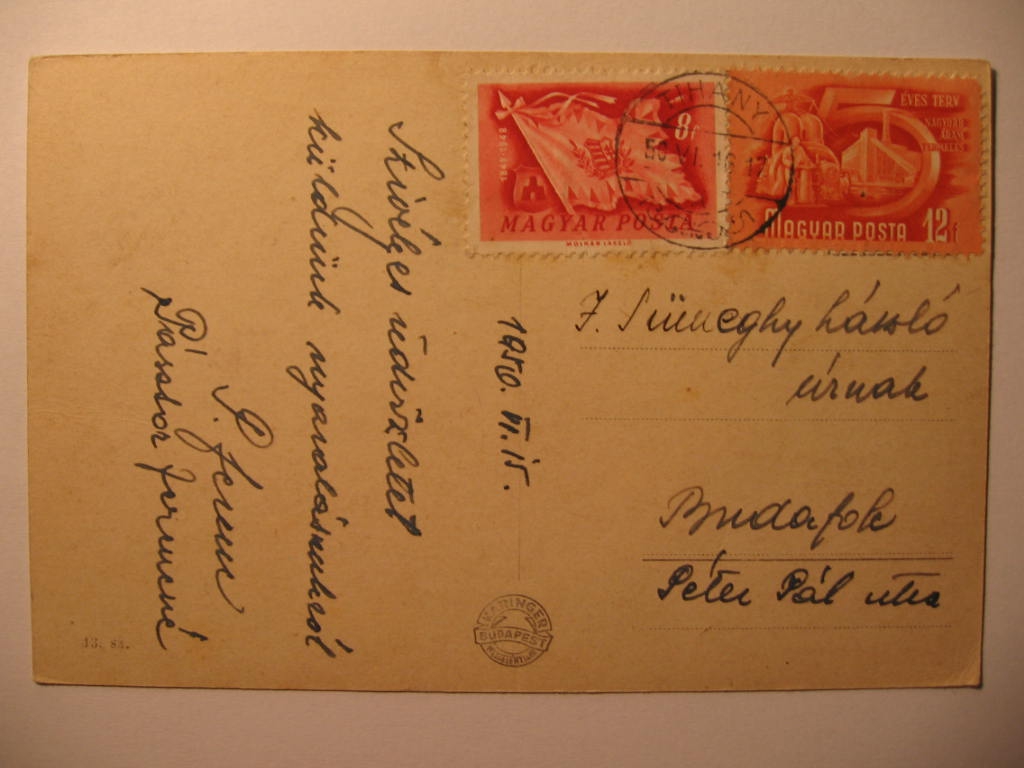 Szívélyes üdvözletet
küldünk nyaralásunkról
P. Ferenc
Pásssor Ferencné
1950. VI. 15.
8f
1848-1948
MAGYAR POSTA
MOLNÁR LÁSZLÓ
5 ÉVES TERV
MAGYAR POSTA 12f
TIHANY
50 VI. 16. 17
F. Sümeghy László
úrnak
Budafok
Péter Pál utca
KARINGER
BUDAPEST
13. sz.